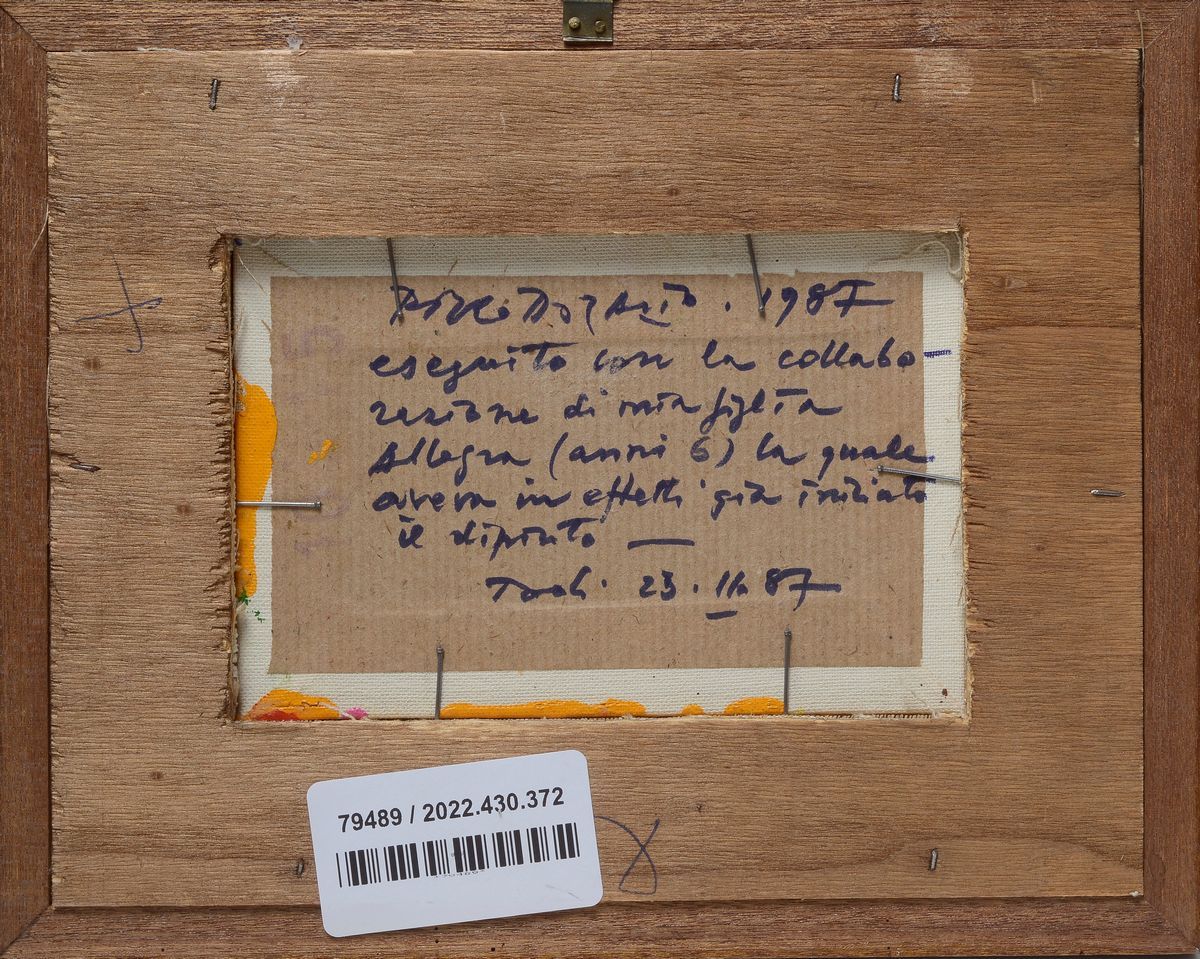 Piero Dorazio. 1987
eseguito con la collabo
razione di mia figlia
Allegra (anni 6) la quale
aveva in effetti già iniziato
il dipinto —
Todi. 23. 11. 87
79489 / 2022.430.372